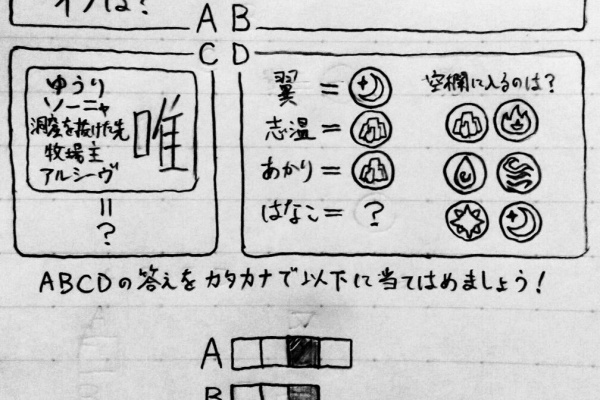 インは?
A B
C D
ゆうり
ソーニャ
洞窟を抜けた先
牧場主
アルシーヴ
唯
=
?
翼 =
志温 =
あかり =
はなこ = ?
空欄に入るのは?
ABCDの答えをカタカナで以下に当てはめましょう!
A
B